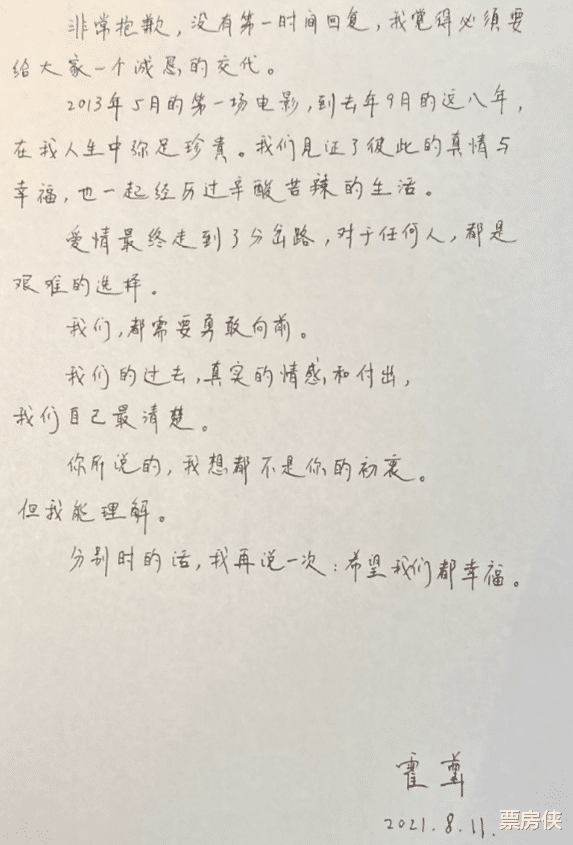 非常抱歉，没有第一时间回复，我觉得必须要
给大家一个诚恳的交代。
2013年5月的第一场电影，到去年9月的这八年，
在我人生中弥足珍贵。我们见证了彼此的真情与
幸福，也一起经历过辛酸苦辣的生活。
爱情最终走到了分岔路，对于任何人，都是
艰难的选择。
我们，都需要勇敢向前。
我们的过去，真实的情感和付出，
我们自己最清楚。
你所说的，我想都不是你的初衷。
但我能理解。
分别时的话，我再说一次：希望我们都幸福。
霍尊
2021.8.11.
票房侠